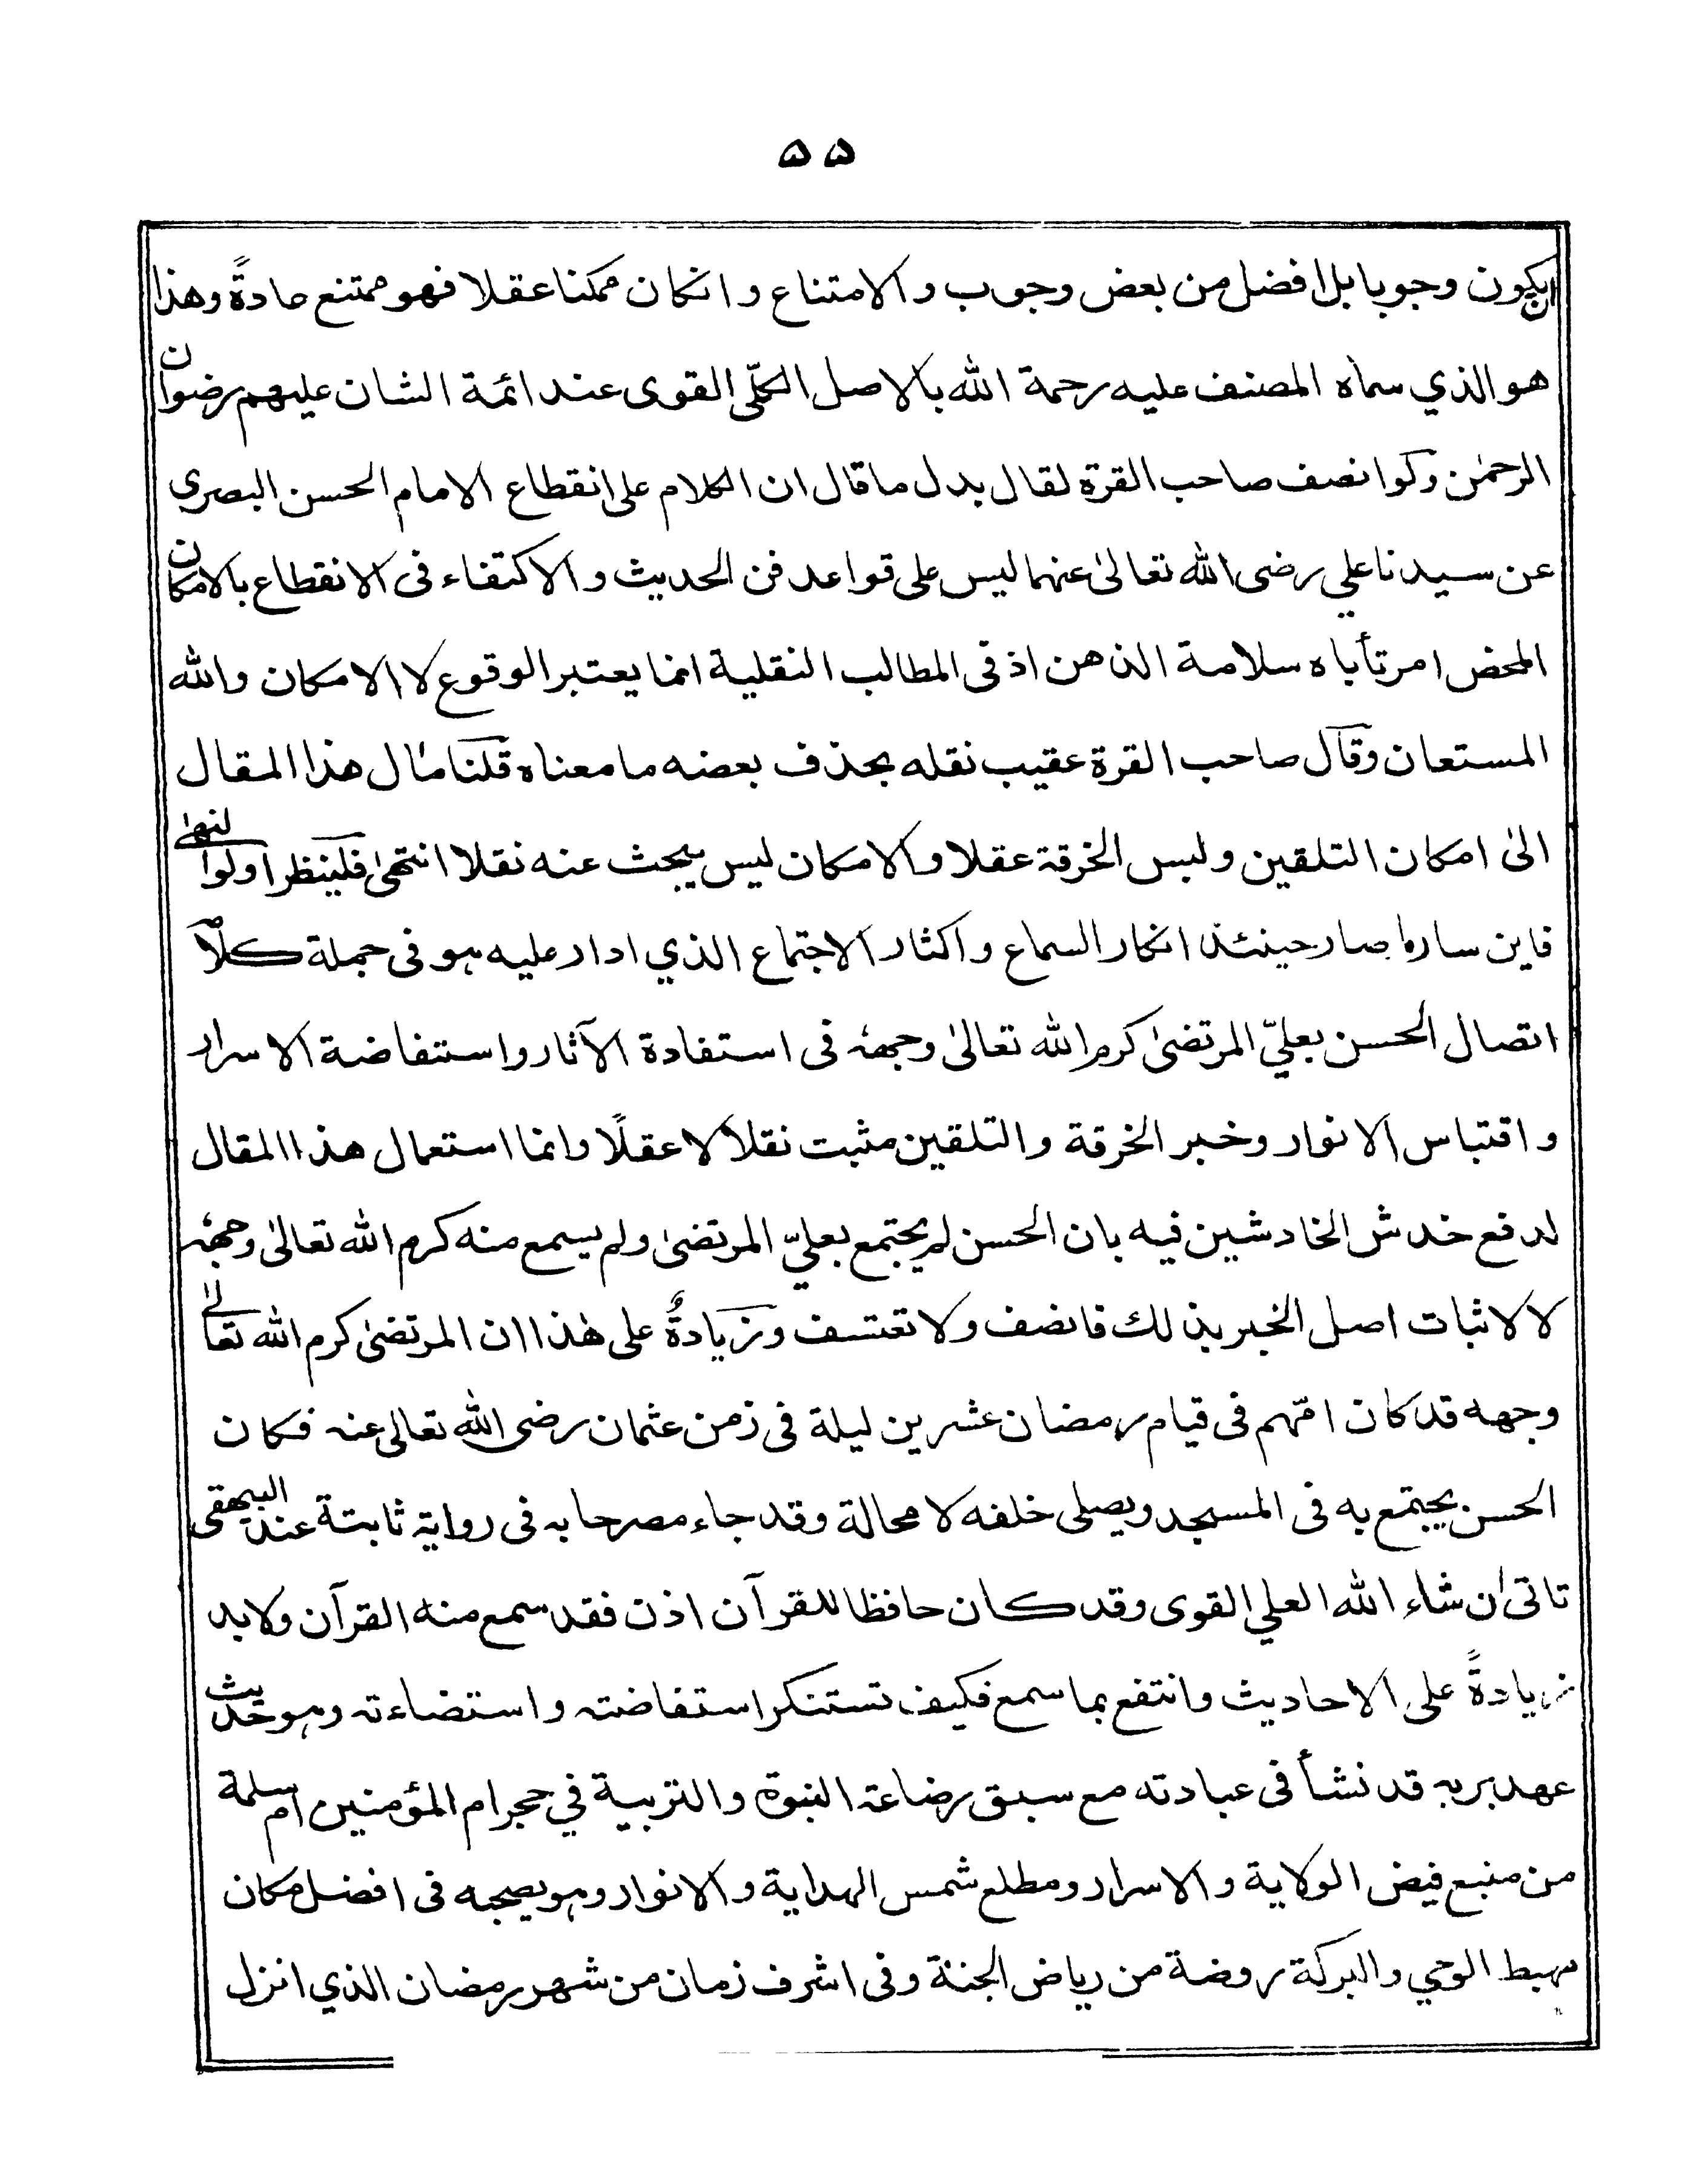 ۵۵
ان يكون وجوبا بل افضل من بعض وجوب والامتناع وانكان ممكنا عقلا فهو ممتنع عادةً وهذا
هو الذي سماه المصنف عليه رحمة الله بالاصل الكلّى القوى عند ائمة الشان عليهم رضوان
الرحمٰن ولو انصف صاحب القرة لقال بدل ما قال ان الكلام على انقطاع الامام الحسن البصرى
عن سيدنا علي رضى الله تعالىٰ عنهما ليس على قواعد فن الحديث والاكتفاء فى الانقطاع بالامكان
المحض امر تأباه سلامة الذهن اذ فى المطالب النقلية انما يعتبر الوقوع لا الامكان والله
المستعان وقال صاحب القرة عقيب نقله بحذف بعضه ما معناه قلنا مٰال هذا المقال
الىٰ امكان التلقين ولبس الخرقة عقلا والامكان ليس يبحث عنه نقلا انتهىٰ فلينظر اولوا لنهىٰ
فاين ساره صار حينئذ انكار السماع واكثار الاجتماع الذي ادار عليه هو فى جملة كلامہ
اتصال الحسن بعليّ المرتضىٰ كرم الله تعالىٰ وجهه فى استفادة الآثار واستفاضة الاسرار
واقتباس الانوار وخبر الخرقة والتلقين مثبت نقلا لا عقلًا وانما استعمال هذا المقال
لدفع خدش الخادشين فيه بان الحسن لم يجتمع بعليّ المرتضىٰ ولم يسمع منه كرم الله تعالىٰ وجهه
لا لاثبات اصل الخبر بذلك فانصف ولا تعتسف وزيادةٌ على هٰذا ان المرتضىٰ كرم الله تعالىٰ
وجهه قد كان امّهم فى قيام رمضان عشرين ليلة فى زمن عثمان رضى الله تعالى عنه فكان
الحسن يجتمع به فى المسجد ويصلى خلفه لا محالة وقد جاء مصرحا به فى رواية ثابتة عند البيهقى
تاتى ان شاء الله العلي القوى وقد كان حافظا للقرآن اذن فقد سمع منه القرآن ولابد
زيادةً على الاحاديث وانتفع بما سمع فكيف تستنكر استفاضته واستضاءته وهو حديث
عهد بربه قد نشأ فى عبادته مع سبق رضاعة النبوة والتربية في حجر ام المؤمنين ام سلمة
من منبع فيض الولاية والاسرار ومطلع شمس الهداية والانوار وهو يصحبه فى افضل مكان
مهبط الوحي والبركة روضة من رياض الجنة وفى اشرف زمان من شهر رمضان الذي انزل